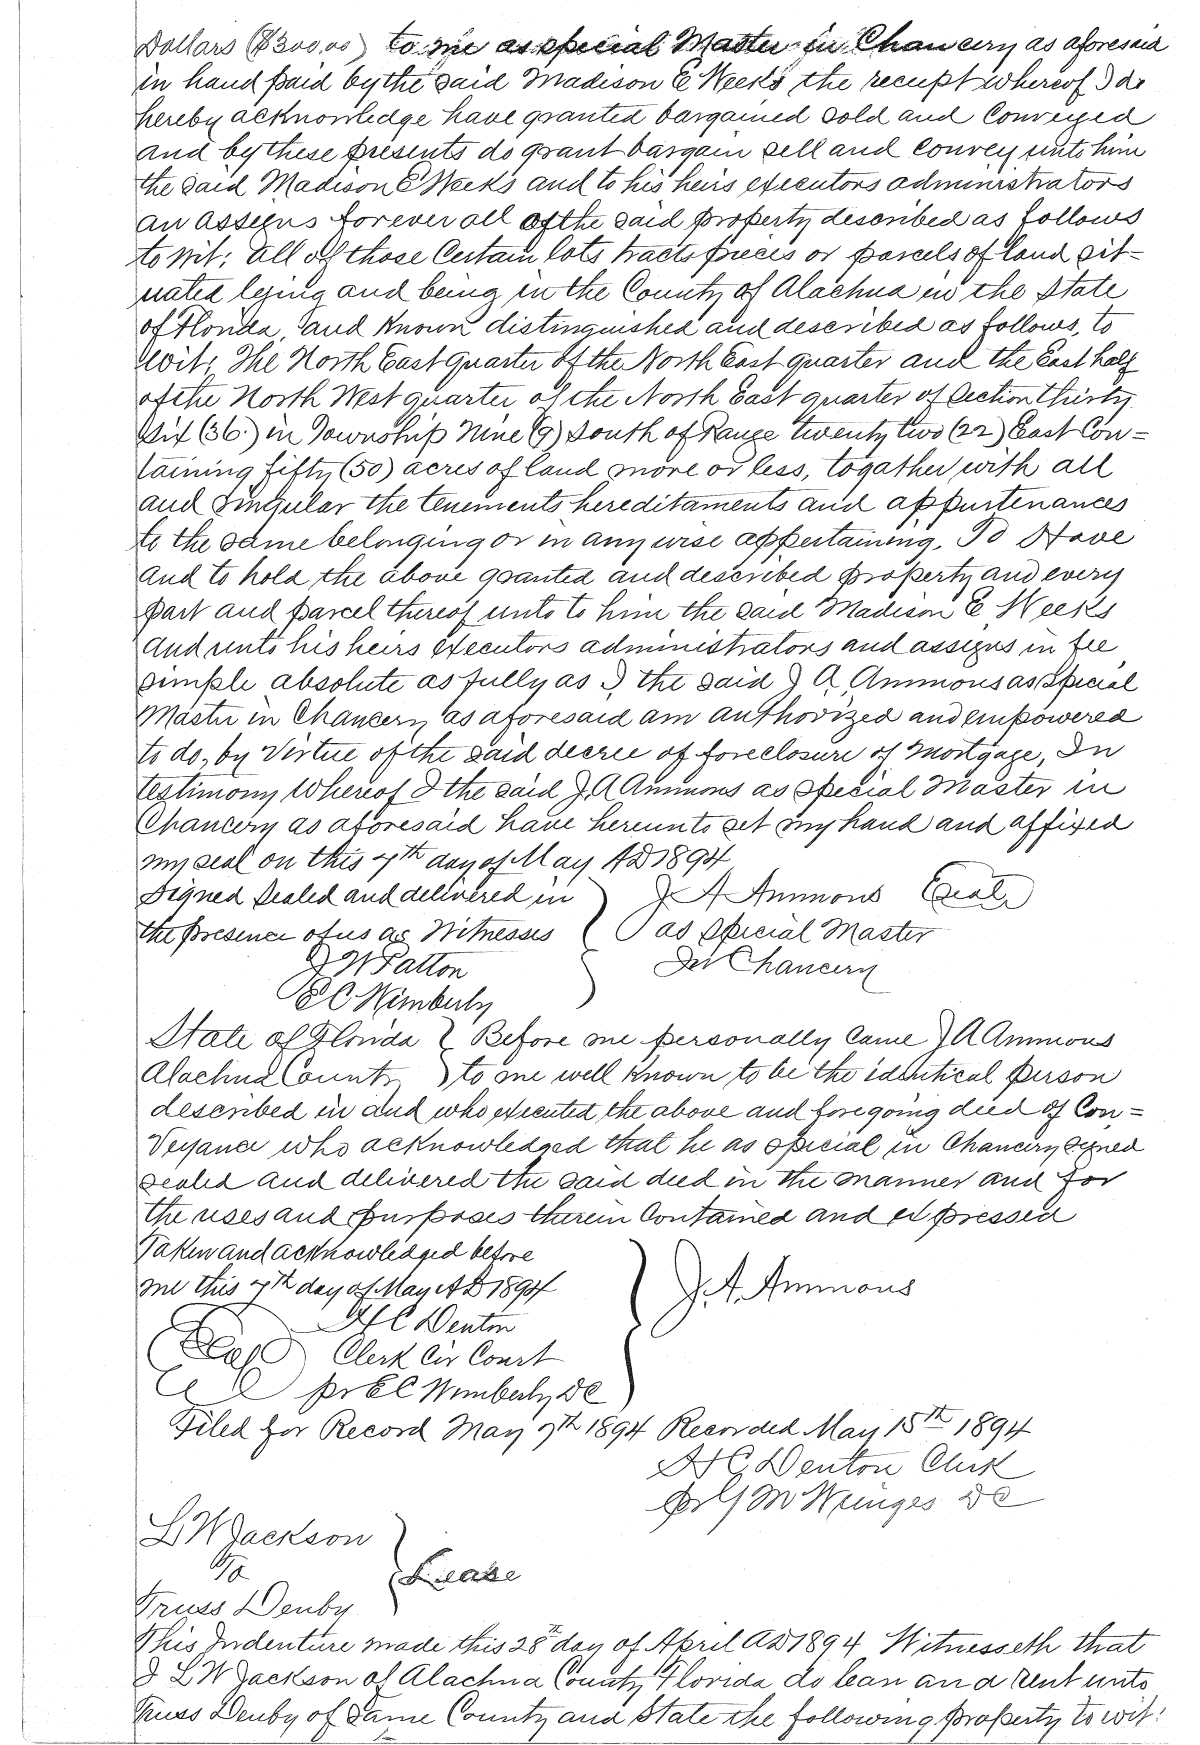 Dollars ($300.00) to me as special Master in Chancery as aforesaid
in hand paid by the said Madison E Weeks the receipt whereof I do
hereby acknowledge have granted bargained sold and Conveyed
and by these presents do grant bargain sell and convey unto him
the said Madison E Weeks and to his heirs executors administrators
an assigns forever all of the said property described as follows
to wit; All of those Certain lots tracts pieces or parcels of land sit=
uated lying and being in the County of Alachua in the State
of Florida, and Known distinguished and described as follows, to
wit; The North East quarter of the North East quarter and the East half
of the North West quarter of the North East quarter of Section thirty
Six (36.) in Township Nine (9) South of Range twenty two (22) East Con=
taining fifty (50) acres of land more or less, togather with all
and Singular the tenements hereditaments and appurtenances
to the same belonging or in any wise appertaining, To Have
and to hold the above granted and described property and every
part and parcel thereof unto to him the said Madison E Weeks
and unto his heirs executors administrators and assigns in fee
simple absolute as fully as I the said J A Ammons as Special
Master in Chancery as aforesaid am authorized and empowered
to do, by Virtue of the said decree of foreclosure of Mortgage, In
testimony Whereof I the said J. A Ammons as special Master in
Chancery as aforesaid have hereunto set my hand and affixed
my seal on this 7th day of May AD 1894
Signed Sealed and delivered in } J A Ammons (Seal)
the presence of us as Witnesses } as Special Master
J W Patton In Chancery
E C Wimberly
State of Florida } Before me personally Came J A Ammons
Alachua County } to me well Known to be the identical person
described in and who executed the above and foregoing deed of Con=
veyance who acknowledged that he as special in Chancery signed
sealed and delivered the said deed in the manner and for
the uses and purposes therein Contained and expressed
Taken and acknowledged before
me this 7th day of May AD 1894 } J. A. Ammons
H C Denton
(Seal) Clerk Cir Court
pr E C Wimberly DC
Filed for Record May 7th 1894 Recorded May 15th 1894
H C Denton Clerk
pr DC
L W Jackson
To } Lease
Truss Denby
This Indenture made this 28th day of April AD 1894 Witnesseth that
I L W Jackson of Alachua County Florida do lean and rent unto
Truss Denby of Same County and State the following property to wit: